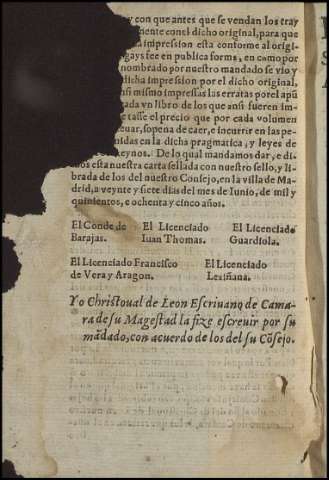 y con que antes que se vendan los tray
mente conel dicho original, para que
la impression esta conforme al origi
gays fee en publica forma, en como por
nombrado por nuestro mandado se vio y
dicha impression por el dicho original,
nsi mismo impressas las erratas por el apũ
cada vn libro de los que ansi fueren im
e tasse el precio que por cada volumen
euar, sopena de caer, e incurrir en las pe
nidas en la dicha pragmatica, y leyes de
Reynos. De lo qual mandamos dar, e di
mos esta nuestra carta sellada con nuestro sello, y li
brada de los del nuestro Consejo, en la villa de Ma
drid, a veynte y siete dias del mes de Iunio, de mil y
quinientos, e ochenta y cinco años.
El Conde de El Licenciado El Licenciado
Barajas. Iuan Thomas. Guardiola.
El Licenciado Francisco El Licenciado
de Vera y Aragon. Lesiñana.
Yo Christoual de Leon Escriuano de Cama
ra de su Magestad la fize escreuir por su
mãdado, con acuerdo de los del su Cõsejo.